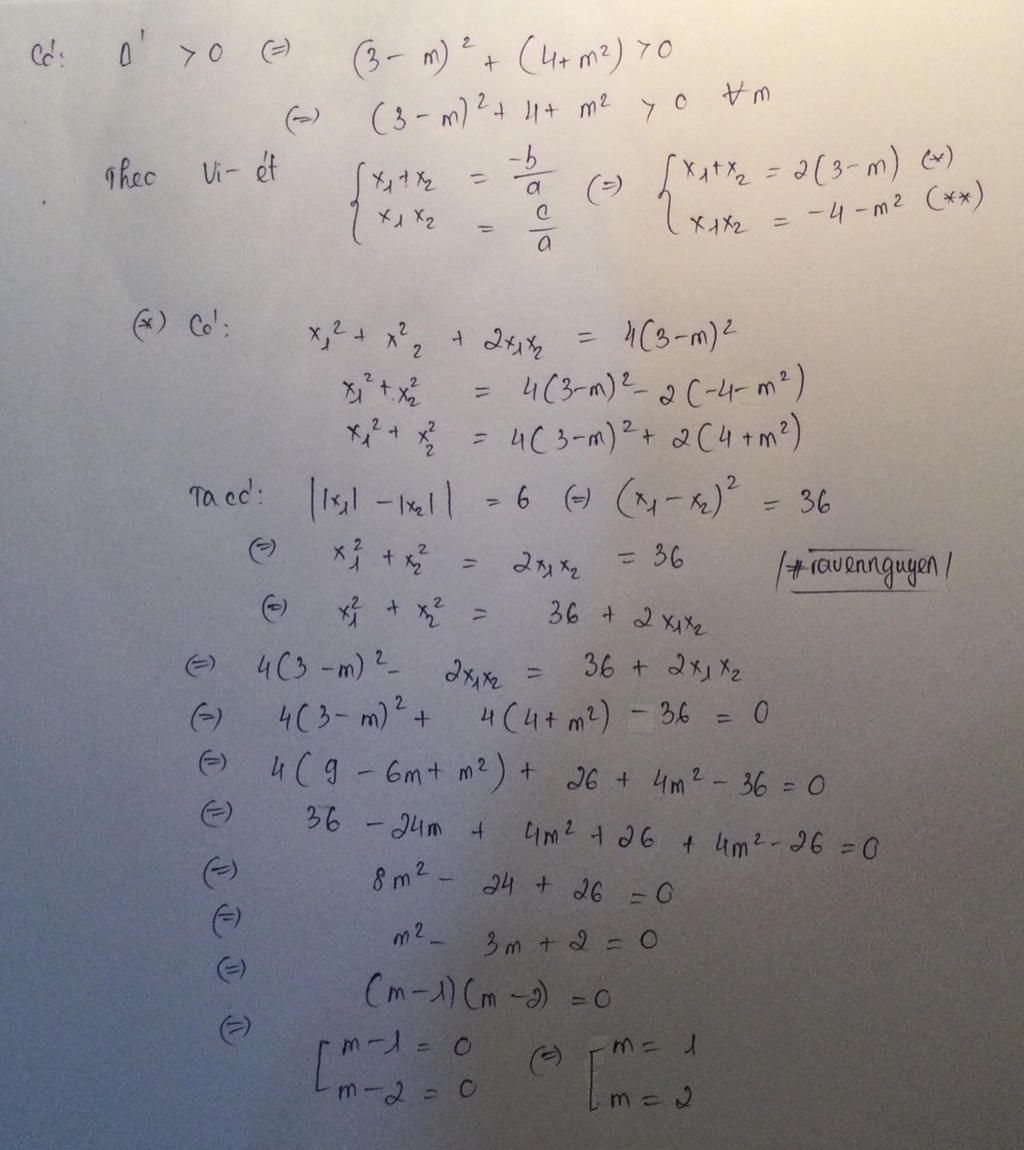 Có: Δ' > 0 (=) (3 - m)² + (4 + m²) > 0
(=) (3 - m)² + 4 + m² > 0 ∀m
Theo Vi-ét { x₁ + x₂ = -b/a (=) { x₁ + x₂ = 2(3 - m) (*)
x₁x₂ = c/a x₁x₂ = -4 - m² (**)
(*) Có: x₁² + x²₂ + 2x₁x₂ = 4(3 - m)²
x₁² + x₂² = 4(3 - m)² - 2(-4 - m²)
x₁² + x₂² = 4(3 - m)² + 2(4 + m²)
Ta có: ||x₁| - |x₂|| = 6 (=) (x₁ - x₂)² = 36
(=) x₁² + x₂² = 2x₁x₂ = 36
/#ravennguyen/
(=) x₁² + x₂² = 36 + 2x₁x₂
(=) 4(3 - m)² - 2x₁x₂ = 36 + 2x₁x₂
(=) 4(3 - m)² + 4(4 + m²) - 36 = 0
(=) 4(9 - 6m + m²) + 26 + 4m² - 36 = 0
(=) 36 - 24m + 4m² + 26 + 4m² - 26 = 0
(=) 8m² - 24 + 26 = 0
(=) m² - 3m + 2 = 0
(=) (m - 1)(m - 2) = 0
(=) [ m - 1 = 0 (=) [ m = 1
m - 2 = 0 m = 2